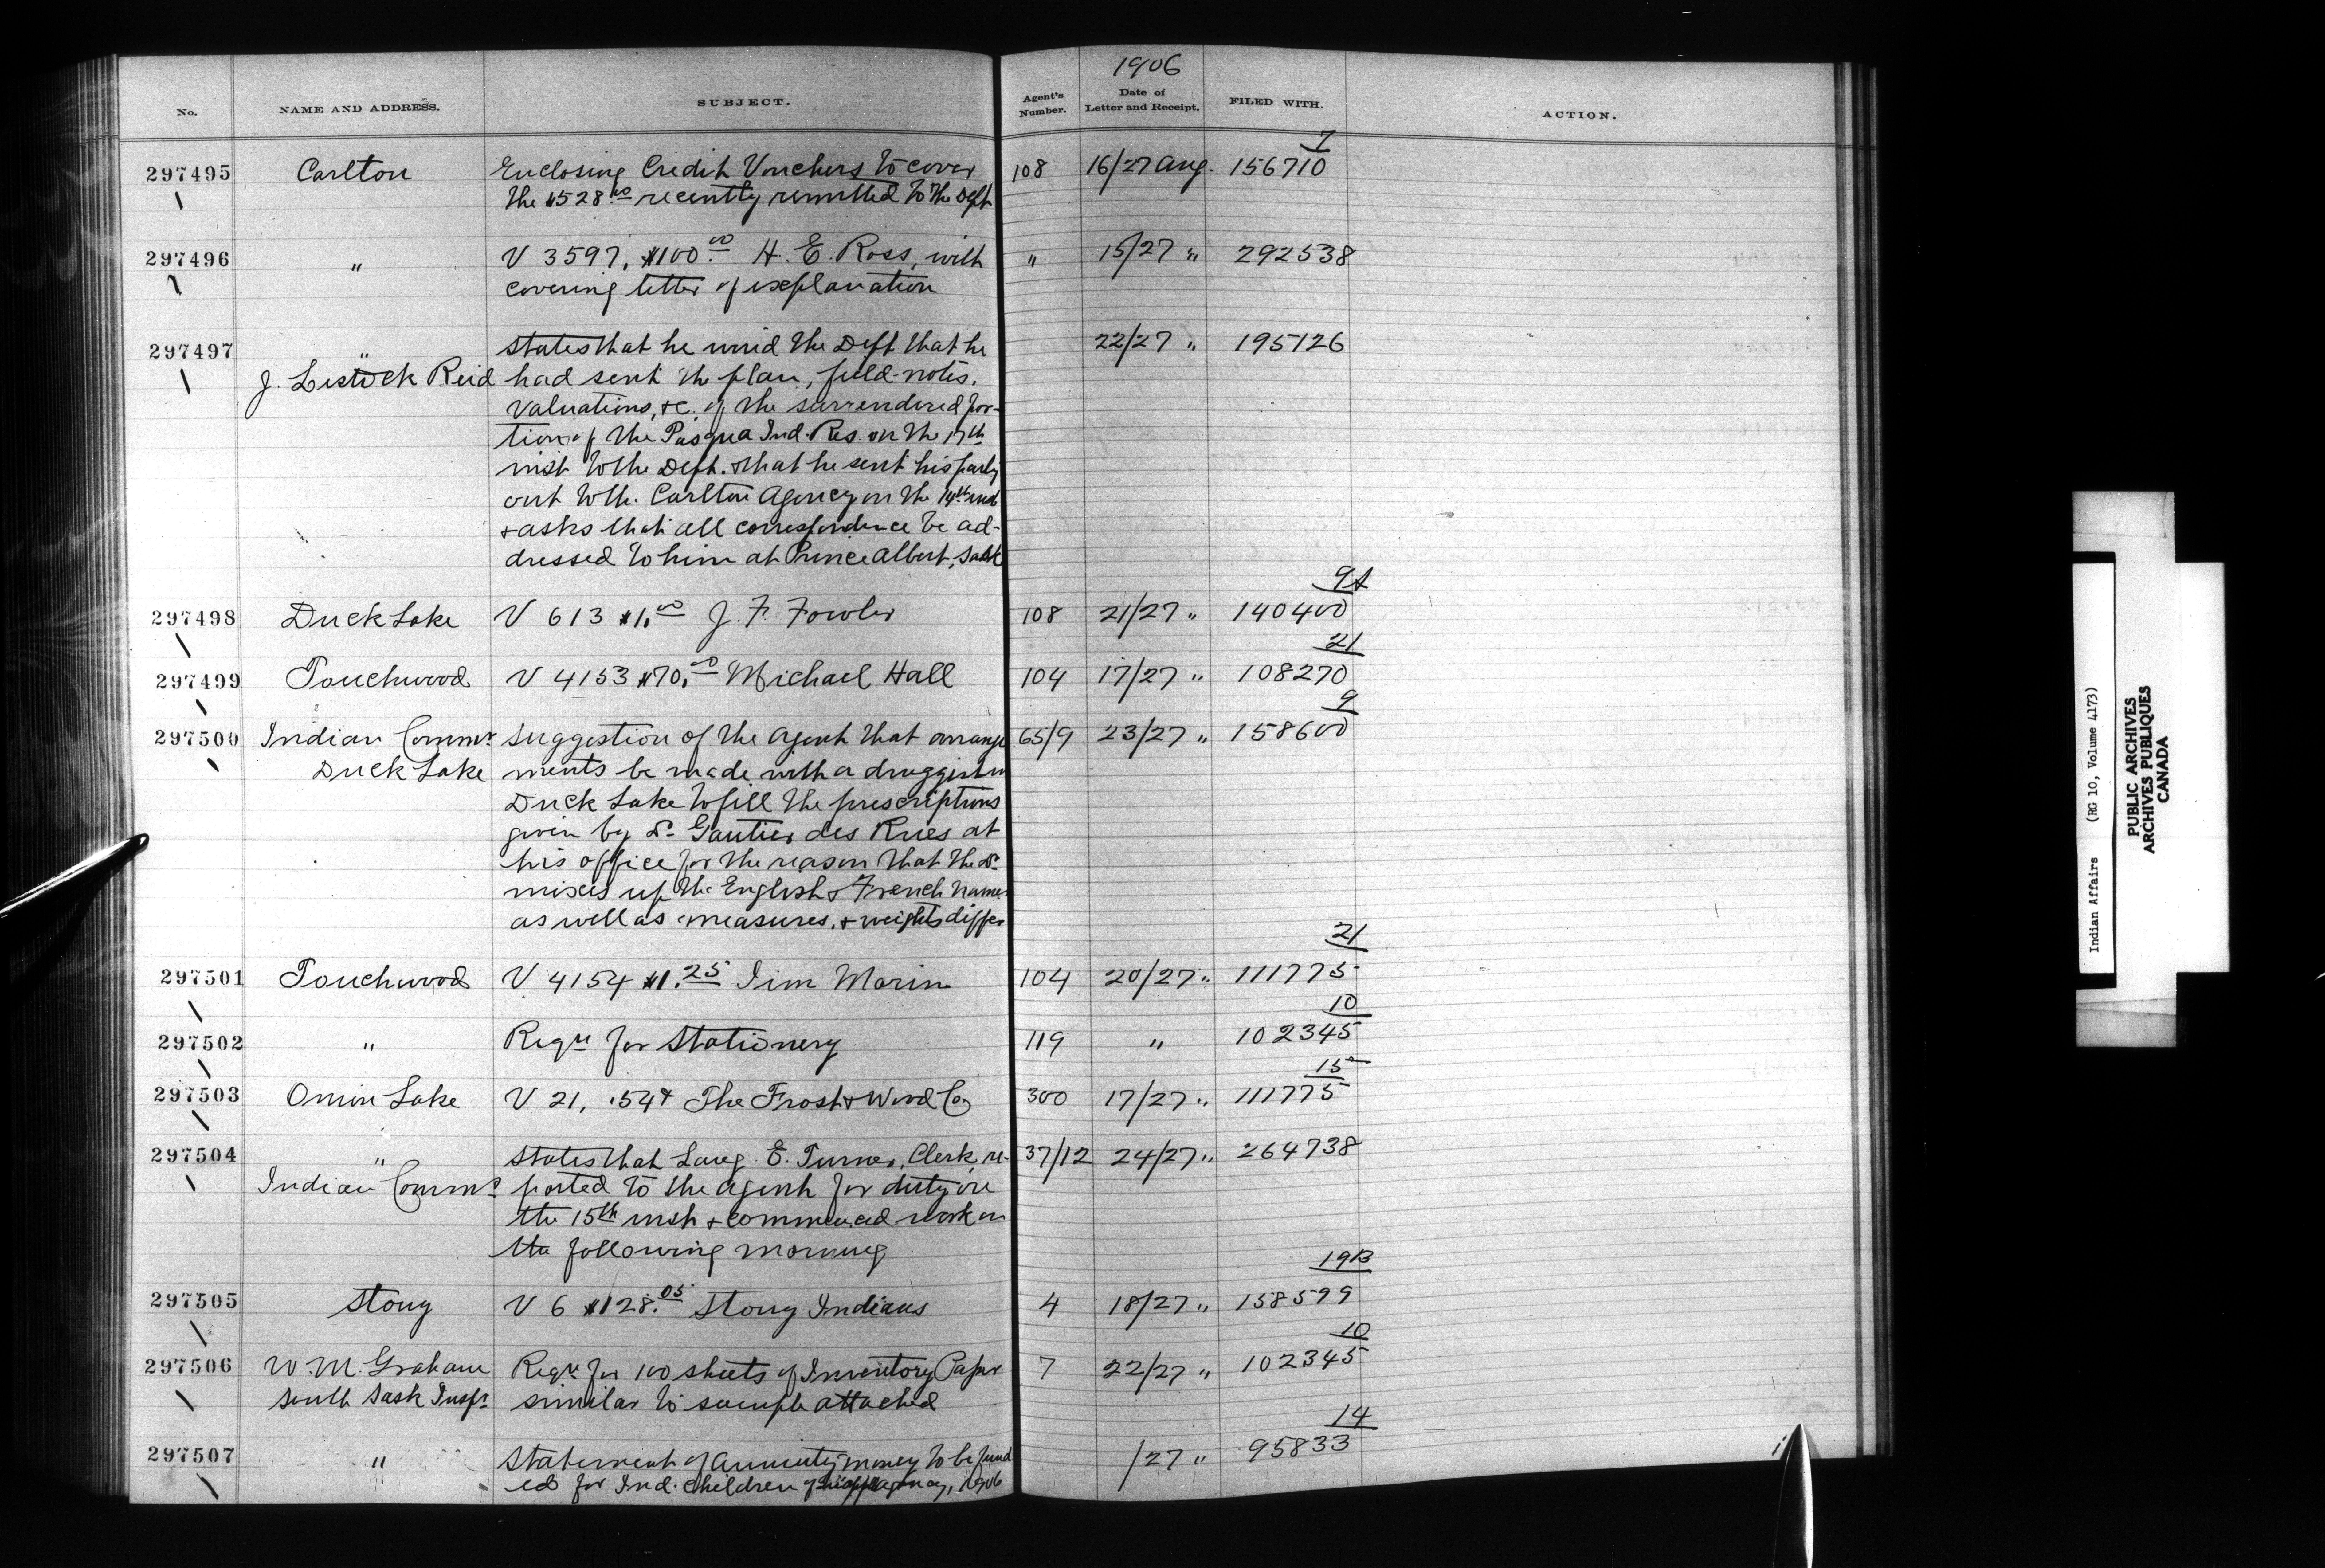 1906
No. NAME AND ADDRESS. SUBJECT. Agent's Number. Date of Letter and Receipt. FILED WITH. ACTION.
7
297495 Carlton Enclosing Credit Vouchers to cover 108 16/27 Aug. 156710
the $528.00 recently remitted to the Dept
297496 " V 3597, $100.00 H. E. Ross, with " 15/27 " 292538
covering letter of explanation
297497 " States that he wired the Dept that he 22/27 " 195126
J. Lestock Reid had sent the plan, field-notes,
valuations, &c. of the surrendered por-
tion of the Pasqua Ind. Res. on the 17th
inst to the Dept. & that he sent his party
out to the Carlton Agency on the 14th inst
& asks that all correspondence be ad-
dressed to him at Prince Albert, Sask
9A
297498 Duck Lake V 613 $1.00 J. F. Fowler 108 21/27 " 140400
21
297499 Touchwood V 4153 $70.00 Michael Hall 104 17/27 " 108270
9
297500 Indian Commr Suggestion of the Agent that arrange 65/9 23/27 " 158600
Duck Lake ments be made with a druggist in
Duck Lake to fill the prescriptions
given by Dr Gautier des Rues at
his office for the reason that the Dr
mixes up the English & French names
as well as measures, & weights differ
21
297501 Touchwood V 4154 $1.25 Jim Morin 104 20/27 " 111775
10
297502 " Reqn for Stationery 119 " 102345
15
297503 Onion Lake V 21, .54 The Frost & Wood Co 300 17/27 " 111775
297504 " States that Laug. E. Turner, Clerk, re- 37/12 24/27 " 264738
Indian Commr ported to the Agent for duty on
the 15th inst & commenced work on
the following morning
19B
297505 Stony V 6 $128.05 Stony Indians 4 18/27 " 158599
10
297506 W. M. Graham Reqn for 100 sheets of Inventory Paper 7 22/27 " 102345
South Sask Inspr similar to sample attached
14
297507 " Statement of annuity money to be fund /27 " 95833
ed for Ind. children of agency, 1906
Indian Affairs (RG 10, Volume 4173)
PUBLIC ARCHIVES
ARCHIVES PUBLIQUES
CANADA